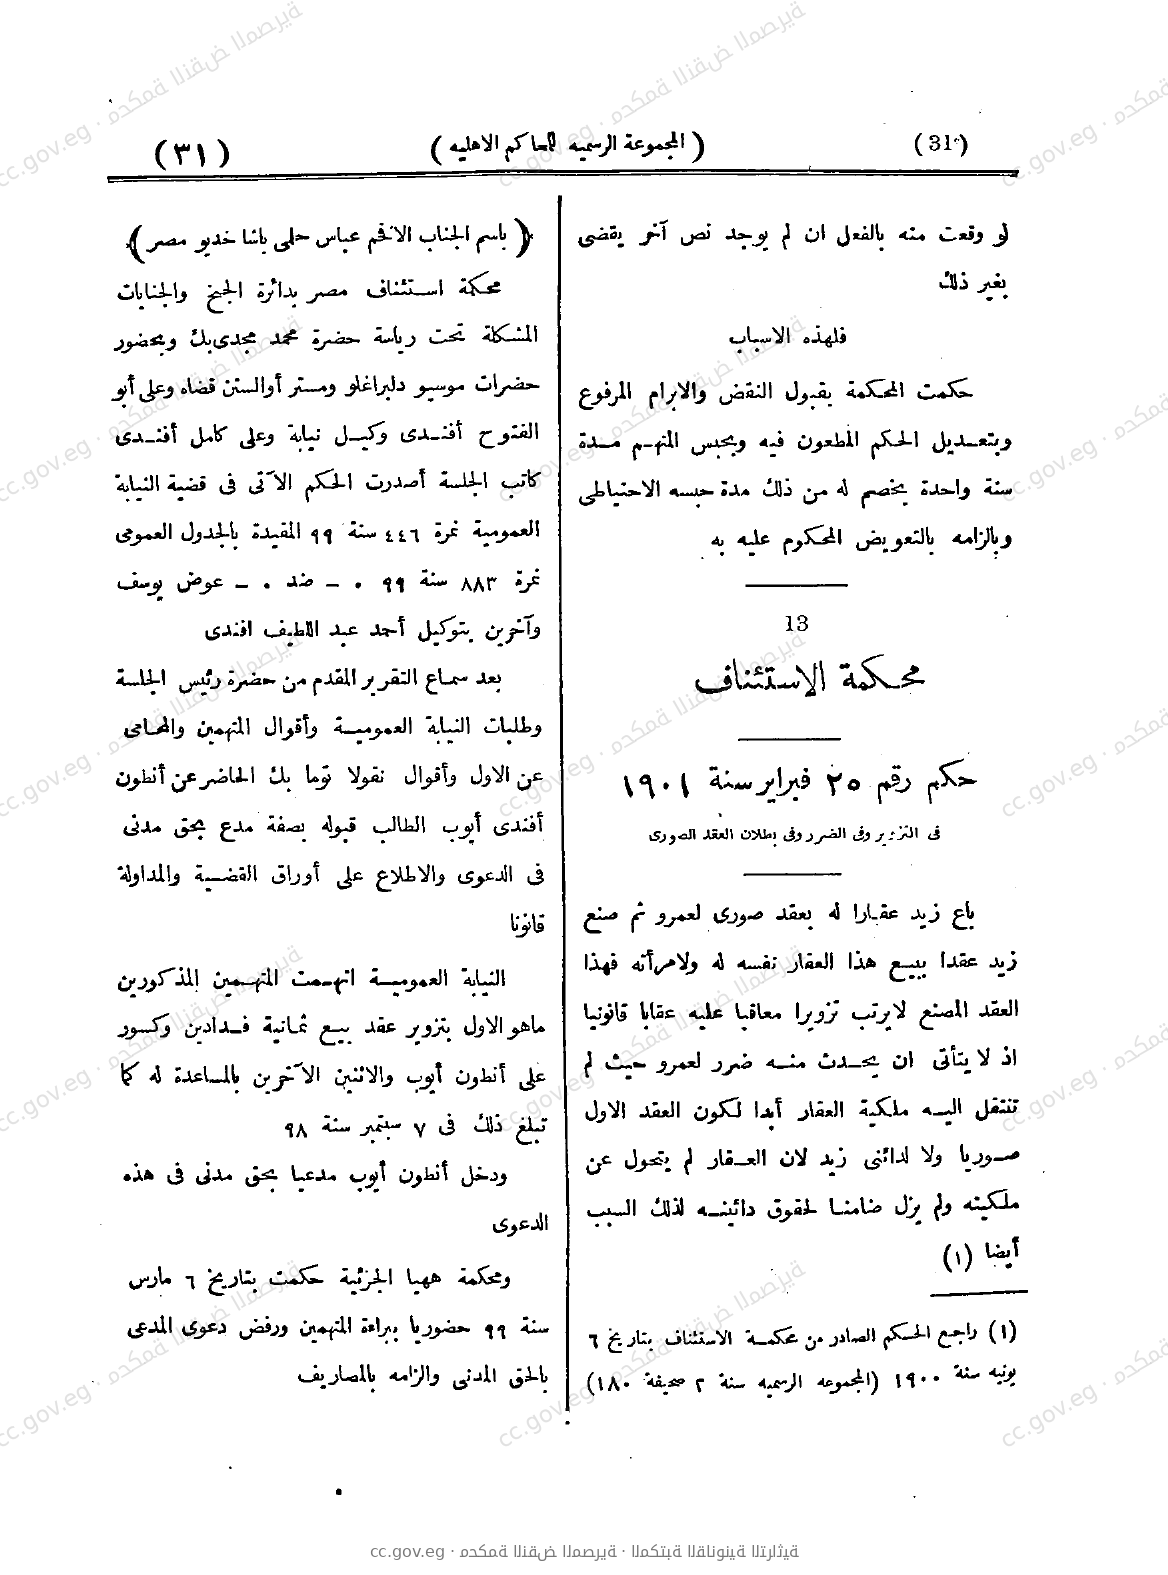 (31)
( المجموعة الرسميه للمحاكم الاهليه )
(٣١)
لو وقعت منه بالفعل ان لم يوجد نص آخر يقضى
بغير ذلك
فلهذه الاسباب
حكمت المحكمة بقبول النقض والابرام المرفوع
وبتعديل الحكم المطعون فيه وبحبس المتهم مدة
سنة واحدة يخصم له من ذلك مدة حبسه الاحتياطى
وبالزامه بالتعويض المحكوم عليه به
13
محكمة الاستئناف
حكم رقم ٢٥ فبراير سنة ١٩٠١
فى التزوير وفى الضرر وفى بطلان العقد الصورى
باع زيد عقارا له بعقد صورى لعمرو ثم صنع
زيد عقدا ببيع هذا العقار نفسه له ولامرأته فهذا
العقد المصنع لا يرتب تزويرا معاقبا عليه عقابا قانونيا
اذ لا يتأتى ان يحدث منه ضرر لعمرو حيث لم
تنتقل اليه ملكية العقار أبدا لكون العقد الاول
صوريا ولا لدائنى زيد لان العقار لم يتحول عن
ملكيته ولم يزل ضامنا لحقوق دائنيه لذلك السبب
أيضا (١)
(١) راجع الحكم الصادر من محكمة الاستئناف بتاريخ ٦
يونيه سنة ١٩٠٠ (المجموعه الرسميه سنة ٢ صحيفة ١٨٠)
﴿ باسم الجناب الافخم عباس حلمى باشا خديو مصر ﴾
محكمة استئناف مصر بدائرة الجنح والجنايات
المشكلة تحت رياسة حضرة محمد مجدى بك وبحضور
حضرات موسيو دلبراغلو ومستر أوالستن قضاه وعلى أبو
الفتوح أفندى وكيل نيابة وعلى كامل أفندى
كاتب الجلسة أصدرت الحكم الآتى فى قضية النيابة
العمومية نمرة ٤٤٦ سنة ٩٩ المقيدة بالجدول العمومى
نمرة ٨٨٣ سنة ٩٩ ٠ – ضد ٠ – عوض يوسف
وآخرين بتوكيل أحمد عبد اللطيف افندى
بعد سماع التقرير المقدم من حضرة رئيس الجلسة
وطلبات النيابة العمومية وأقوال المتهمين والمحامى
عن الاول وأقوال نقولا توما بك الحاضر عن أنطون
أفندى أيوب الطالب قبوله بصفة مدع بحق مدنى
فى الدعوى والاطلاع على أوراق القضية والمداولة
قانونا
النيابة العمومية اتهمت المتهمين المذكورين
ماهو الاول بتزوير عقد بيع ثمانية فدادين وكسور
على أنطون أيوب والاثنين الآخرين بالمساعدة له كما
تبلغ ذلك فى ٧ سبتمبر سنة ٩٨
ودخل أنطون أيوب مدعيا بحق مدنى فى هذه
الدعوى
ومحكمة ههيا الجزئية حكمت بتاريخ ٦ مارس
سنة ٩٩ حضوريا ببراءة المتهمين ورفض دعوى المدعى
بالحق المدنى والزامه بالمصاريف
cc.gov.eg · محكمة النقض المصرية · المكتبة القانونية التراثية